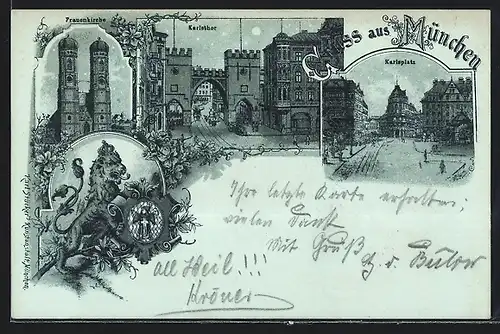 Frauenkirche
Karlsthor
Gruss aus München
Karlsplatz
Ihre letzte Karte erhalten;
vielen Dank
Mit Gruß
v. Bülow
all Heil!!!
Kröner